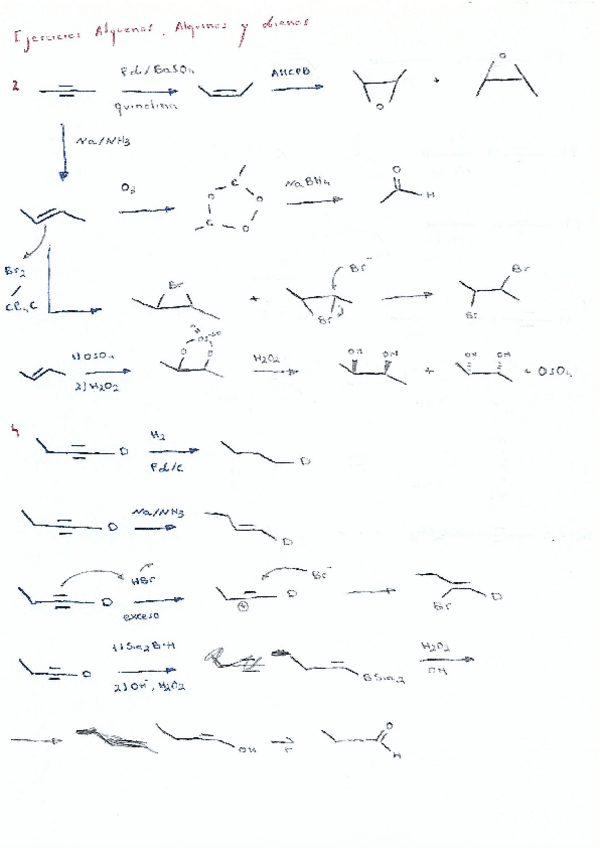 Ejercicios Alquenos, Alquinos y dienos
2 Pd/BaSO4 quinolina AMCPB O O +
Na/NH3
O3 NaBH4 O H
Br2 / CCl4 Br + Br Br⁻ Br Br
1) OSO4 2) H2O2 O O H2O2 OH OH + OH OH + OSO4
4 D H2 Pd/C D
D Na/NH3 D
D HBr exceso + D Br⁻ Br D
D 1) Sia2B-H 2) OH⁻, H2O2 BSia2 H2O2 OH
OH O H